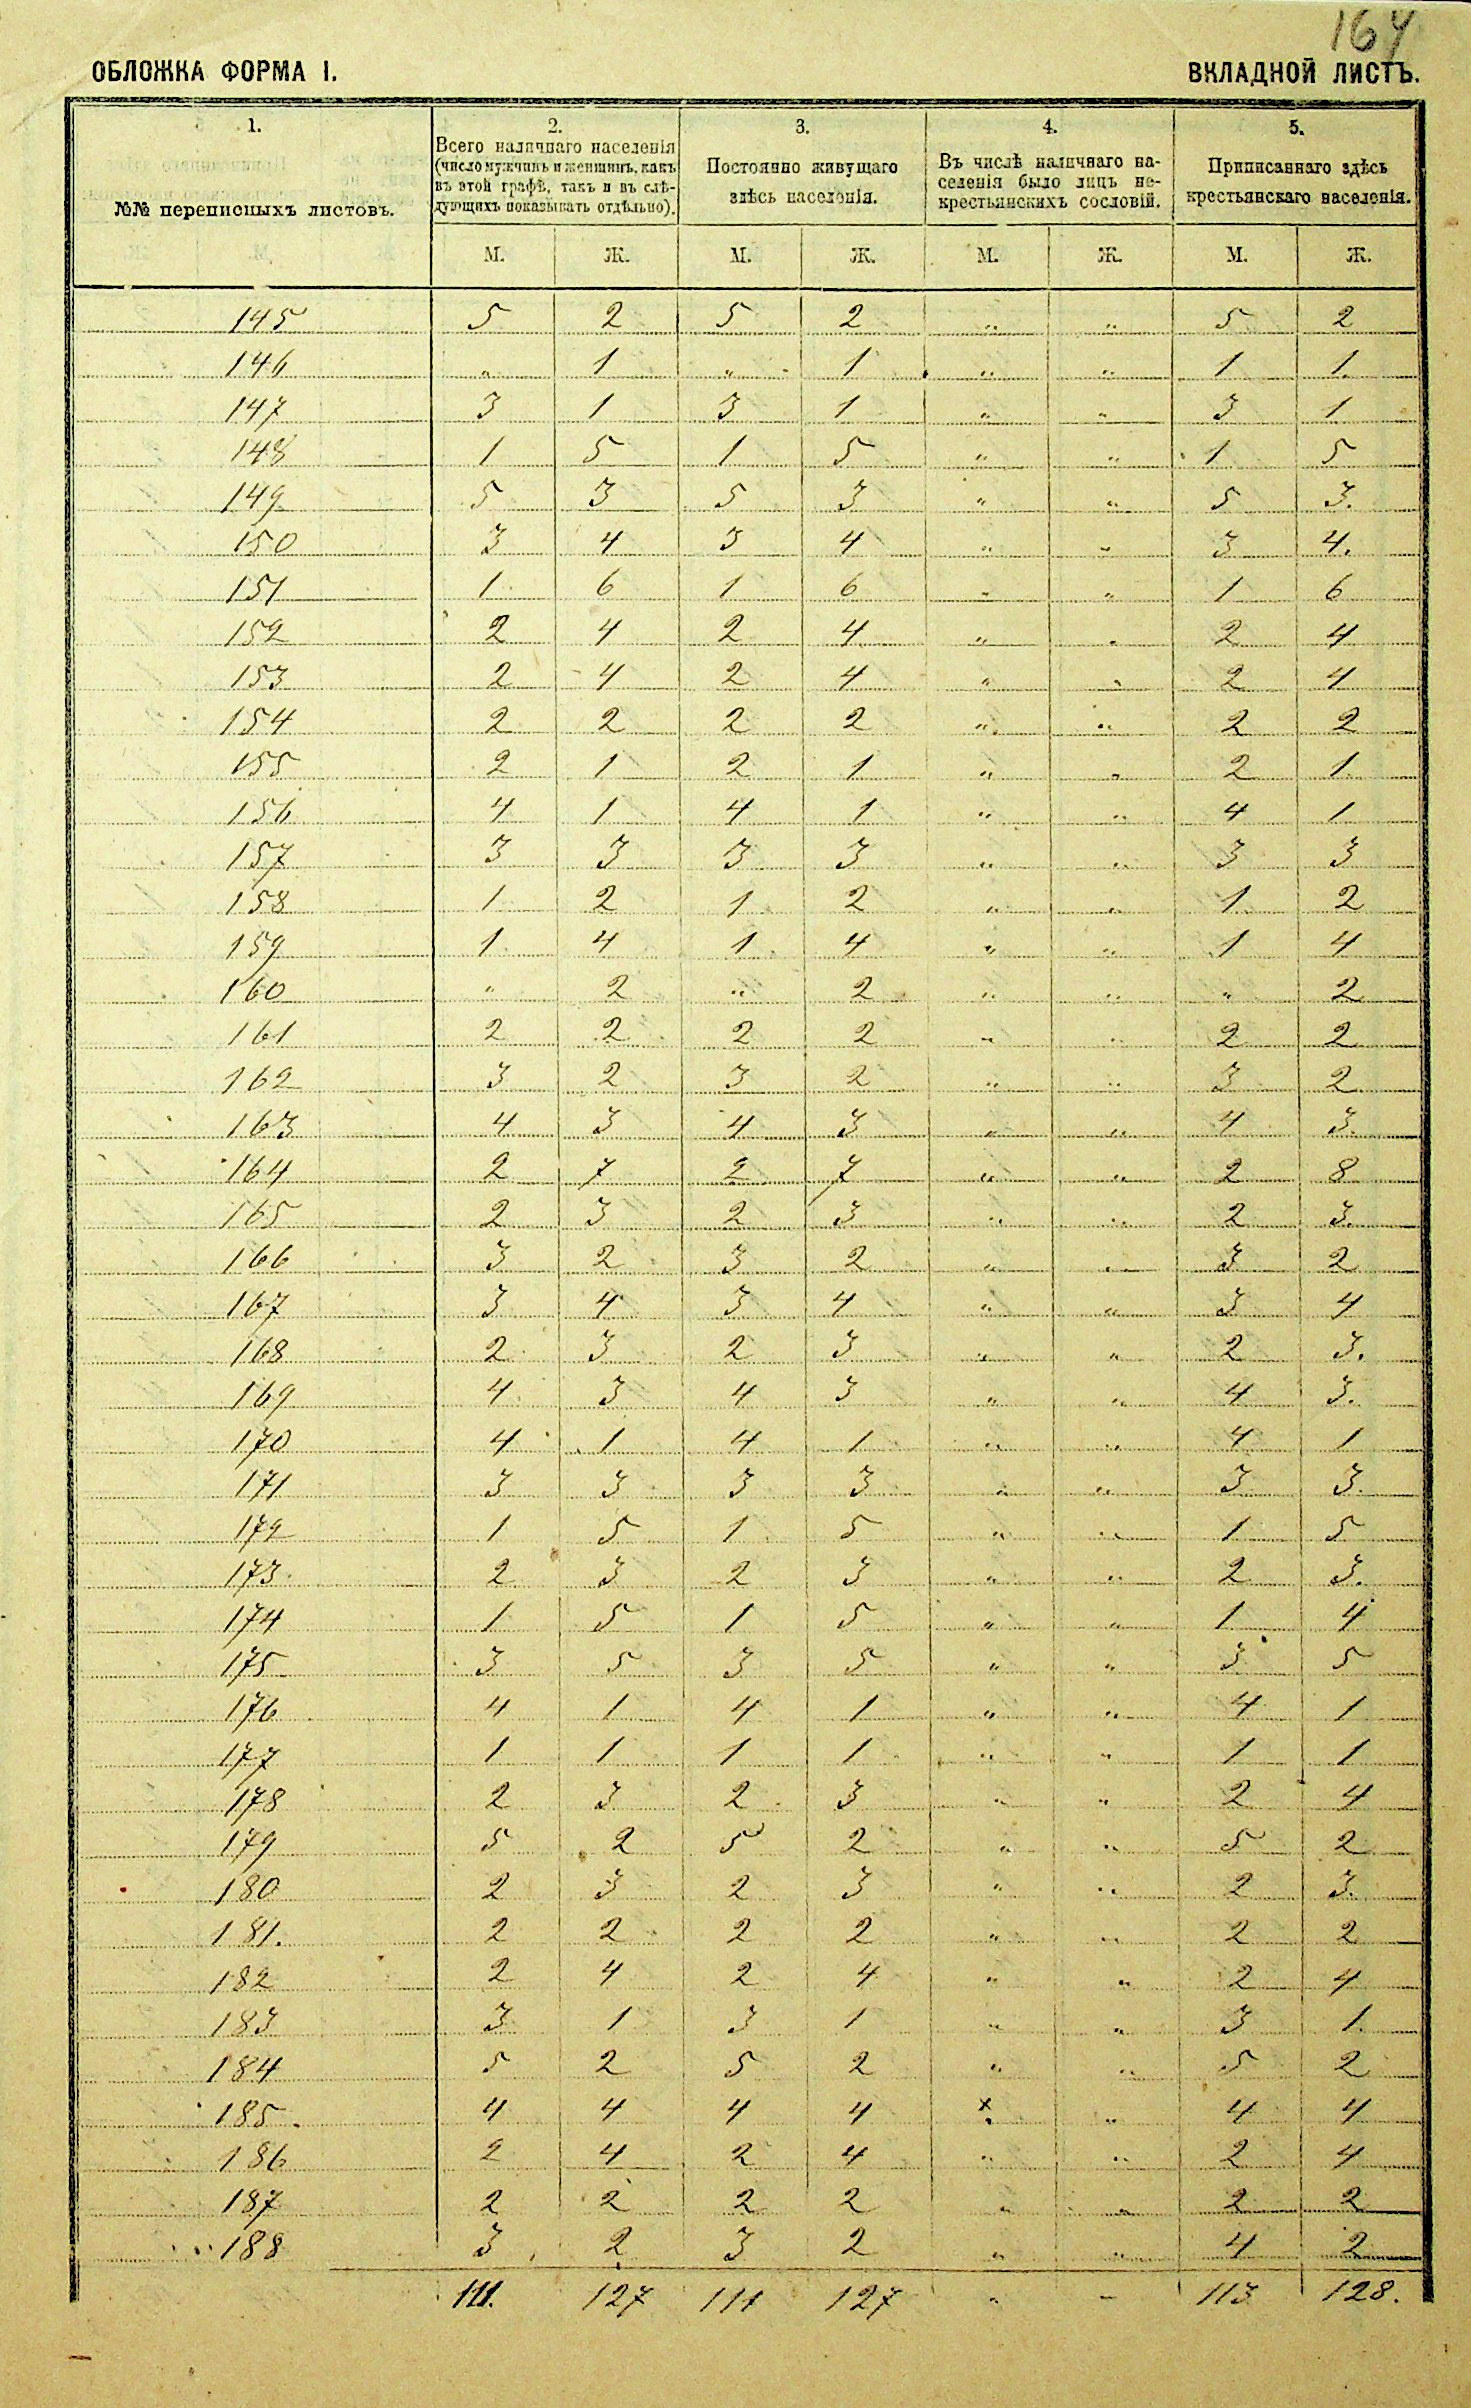 164
ОБЛОЖКА ФОРМА I. ВКЛАДНОЙ ЛИСТЪ.
1. 2. 3. 4. 5.
№№ переписныхъ листовъ.
Всего наличнаго населенія
(число мужчинъ и женщинъ, какъ
въ этой графѣ, такъ и въ слѣ-
дующихъ показывать отдѣльно).
Постоянно живущаго
здѣсь населенія.
Въ числѣ наличнаго на-
селенія было лицъ не-
крестьянскихъ сословій.
Приписаннаго здѣсь
крестьянскаго населенія.
М. Ж. М. Ж. М. Ж. М. Ж.
145 5 2 5 2 " " 5 2
146 " 1 " 1 " " 1 1.
147 3 1 3 1 " " 3 1
148 1 5 1 5 " " 1 5
149 5 3 5 3 " " 5 3.
150 3 4 3 4 " " 3 4.
151 1 6 1 6 " " 1 6
152 2 4 2 4 " " 2 4
153 2 4 2 4 " " 2 4
154 2 2 2 2 " " 2 2
155 2 1 2 1 " " 2 1
156 4 1 4 1 " " 4 1
157 3 3 3 3 " " 3 3
158 1 2 1 2 " " 1 2
159 1 4 1 4 " " 1 4
160 " 2 " 2 " " " 2
161 2 2 2 2 " " 2 2
162 3 2 3 2 " " 3 2
163 4 3 4 3 " " 4 3.
164 2 7 2 7 " " 2 8
165 2 3 2 3 " " 2 3.
166 3 2 3 2 " " 3 2
167 3 4 3 4 " " 3 4
168 2 3 2 3 " " 2 3.
169 4 3 4 3 " " 4 3.
170 4 1 4 1 " " 4 1
171 3 3 3 3 " " 3 3.
172 1 5 1 5 " " 1 5
173 2 3 2 3 " " 2 3.
174 1 5 1 5 " " 1 4
175 3 5 3 5 " " 3 5
176 4 1 4 1 " " 4 1
177 1 1 1 1 " " 1 1
178 2 3 2 3 " " 2 4
179 5 2 5 2 " " 5 2
180 2 3 2 3 " " 2 3.
181. 2 2 2 2 " " 2 2
182 2 4 2 4 " " 2 4
183 3 1 3 1 " " 3 1.
184 5 2 5 2 " " 5 2
185. 4 4 4 4 x " 4 4
186 2 4 2 4 " " 2 4
187 2 2 2 2 " " 2 2
188 3 2 3 2 " " 4 2
111. 127 111 127 " – 113 128.